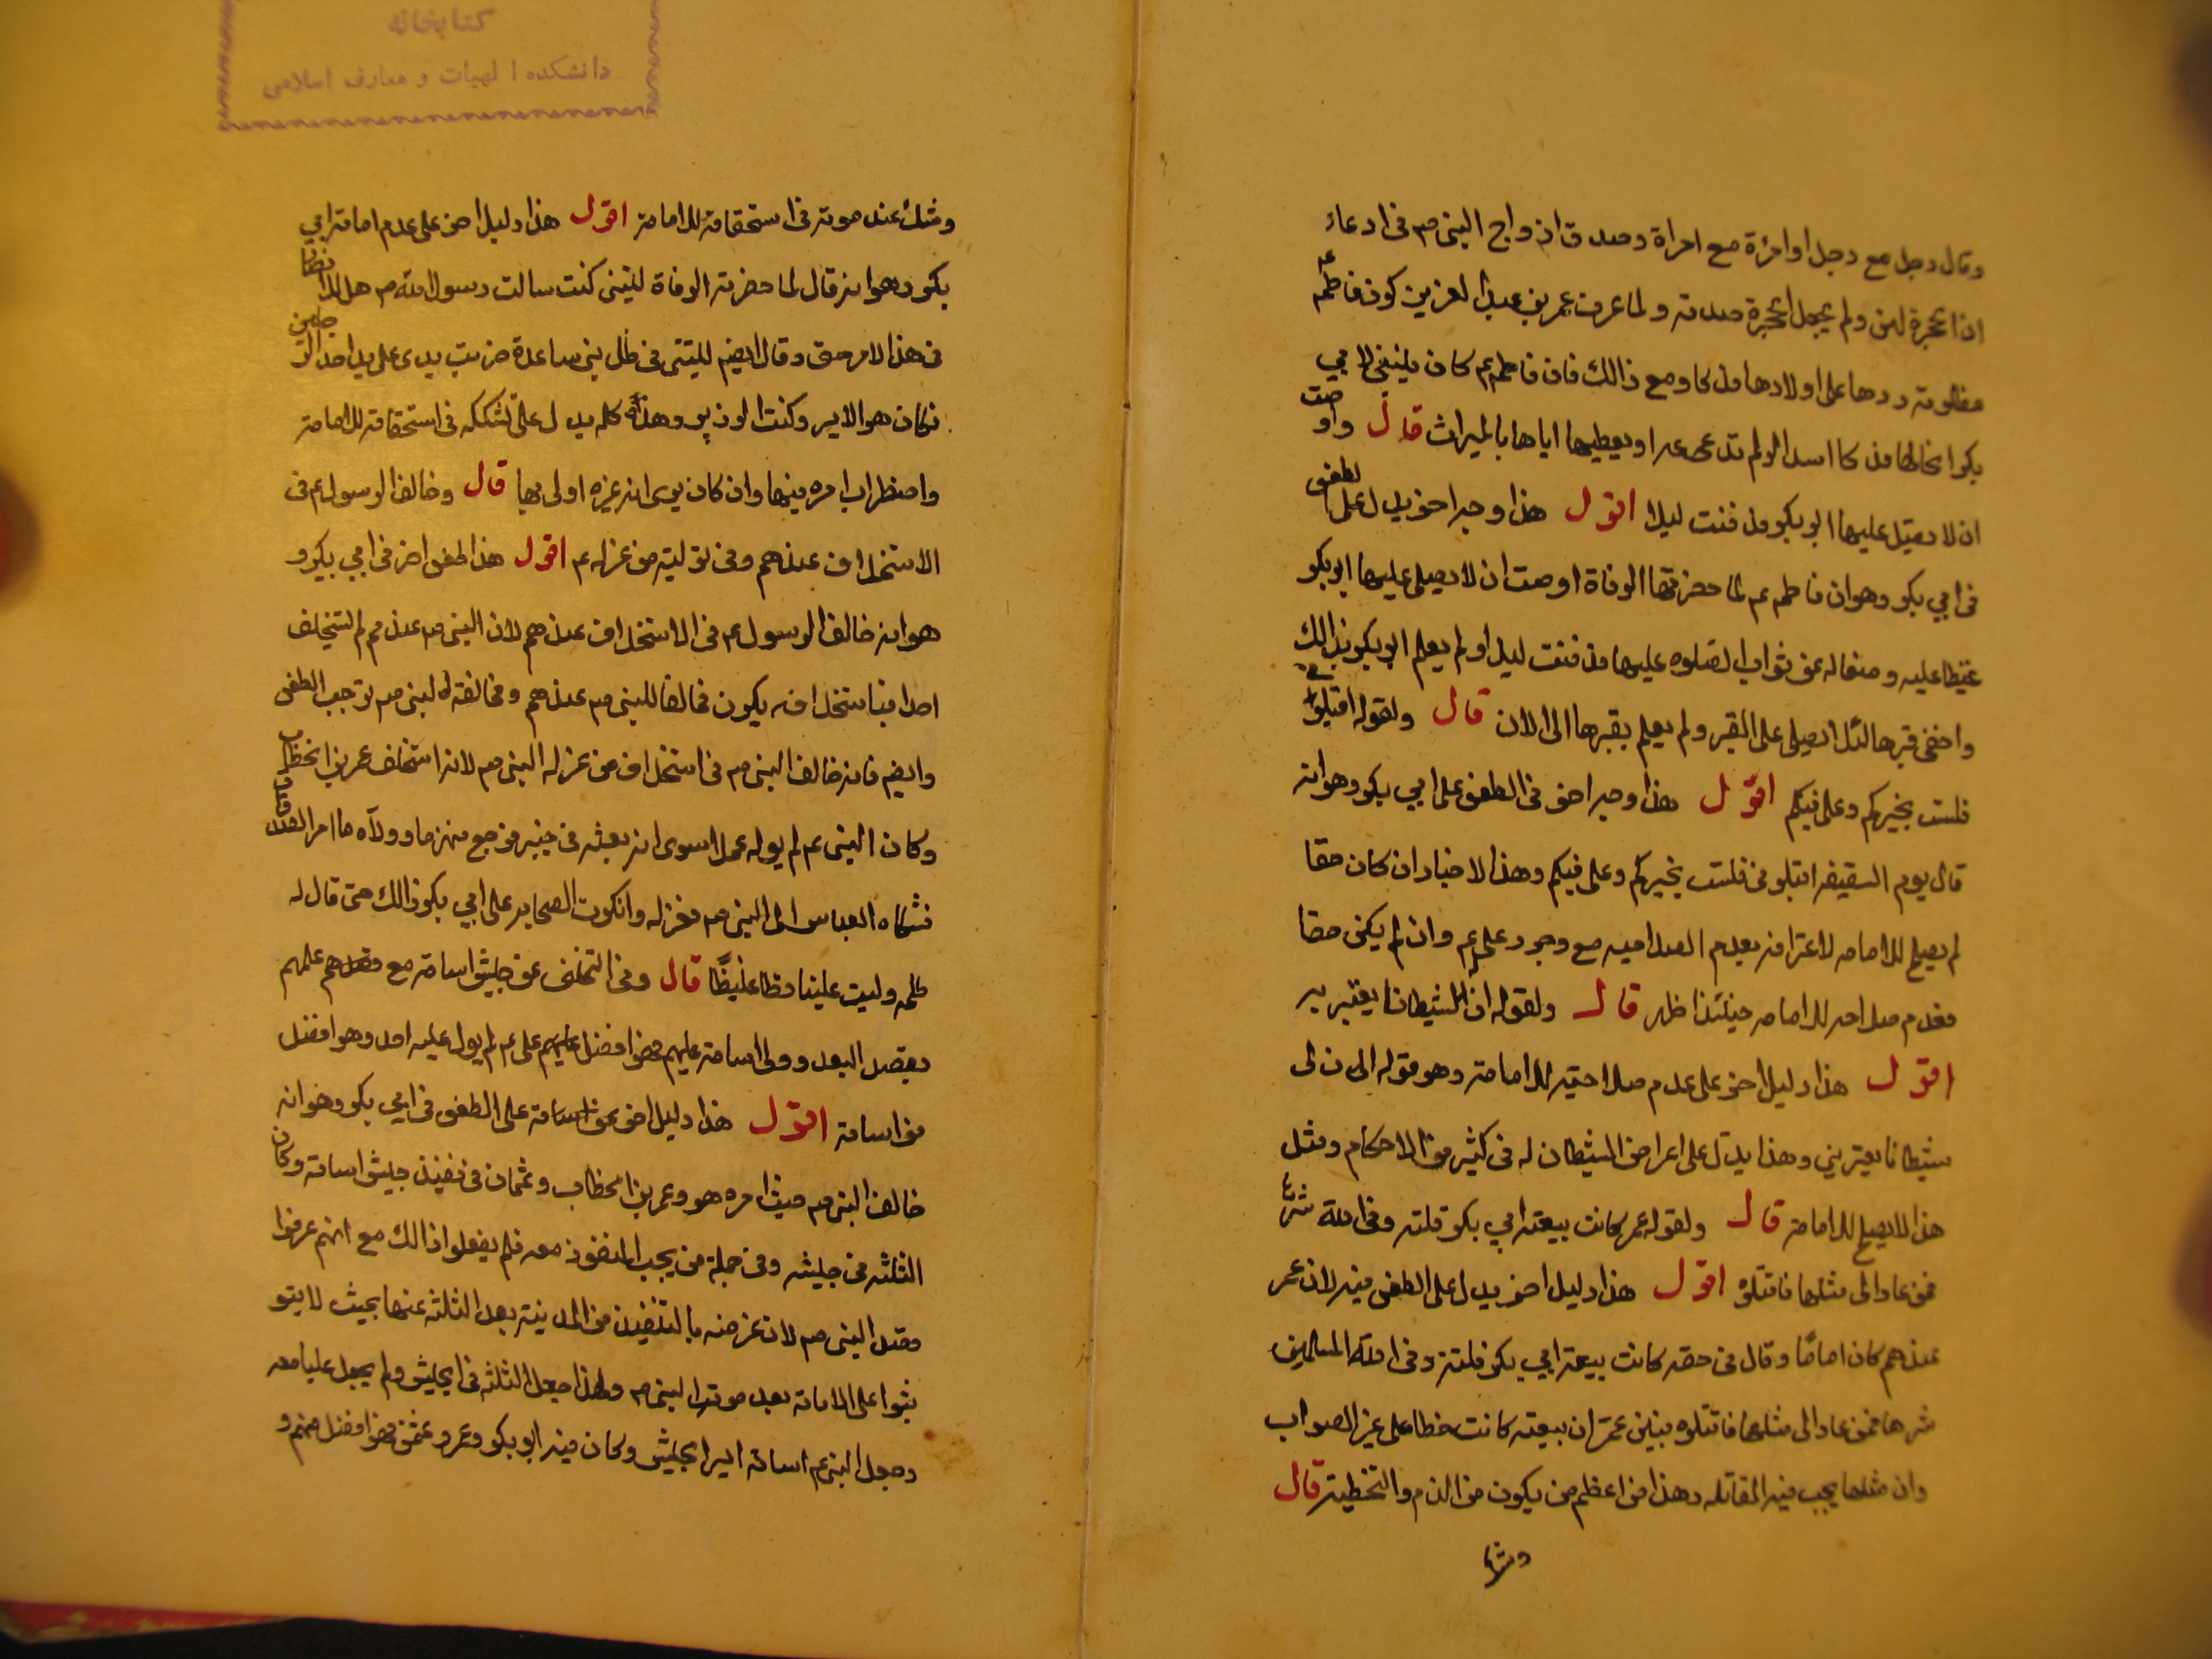 وقال رجل مع رجل او امرئة مع امراة وصدق ازواج النبي صم في ادعاء
ان الحجرة لهن ولم يجعل الحجرة صدقة ولما عرف عمر بن عبد العزيز كون فاطمه ع
مظلومة رد دها على اولادها فدكا ومع ذالك فان فاطمه ع كان ينبغي لابي
بكر اعطائها فدكا ابتداء لو لم تدعيه او يعطيها اياها بالميراث قال واوصت
ان لا يصلي عليها ابو بكر فدفنت ليلا اقول هذا وجه اخر يدل على لطعن
في ابي بكر وهو ان فاطمه ع لما حضرتها الوفاة اوصت ان لا يصلي عليها ابو بكر
غيظا عليه ومنعا له عن ثواب الصلوه عليها فدفنت ليلا ولم يعلم ابو بكر بذالك
واخفى قبرها لئلا يصلي على القبر ولم يعلم بقبرها الى الان قال ولقوله اقيلوني
فلست بخيركم وعلي فيكم اقول هذا وجه اخر في الطعن على ابي بكر وهو انه
قال يوم السقيفه اقيلوني فلست بخيركم وعلي فيكم وهذا الاخبار ان كان حقا
لم يصلح للامامه لاعترافه بعدم الصلاحيه مع وجود علي ع وان لم يكن حقا
فعدم صلاحه للامامه حينئذ اظهر قال ولقوله ان له شيطانا يعتريه
اقول هذا دليل اخر على عدم صلاحيته للامامة وهو قوله ان لي
شيطانا يعتريني وهذا يدل على اعراض الشيطان له في كثير من الاحكام ومثل
هذا لا يصلح للامامة قال ولقول عمر كانت بيعة ابي بكر فلتة وقى الله شرها
فمن عاد الى مثلها فاقتلوه اقول هذا دليل اخر يدل على الطعن فيه لان عمر
عندهم كان اماما وقال في حقه كانت بيعة ابي بكر فلتة وقى الله المسلمين
شرها فمن عاد الى مثلها فاقتلوه فبين عمر ان بيعته كانت خطا على غير الصواب
وان مثلها يجب فيه المقاتله وهذا من اعظم من يكون من الذم والتخطية قال
وشك
كتابخانه
دانشكده الهيات و معارف اسلامى
وشك عند موته في استحقاقه للامامة اقول هذا دليل اخر على عدم امامة ابي
بكر وهو انه قال لما حضرته الوفاة ليتني كنت سالت رسول الله ص هل للانصار
في هذا الامر حق وقال ايضم ليتني في ظل بني ساعدة ضربت يدي على يد احد الرجلين
فكان هو الامير وكنت الوزير وهذا كله يدل على تشككه في استحقاقه للامامة
واضطراب امره فيها وان كان يرى ان غيره اولى بها قال وخالف الرسول ع في
الاستخلاف عندهم وفي تولية من عزله ع اقول هذا طعن اخر في ابي بكر و
هو انه خالف الرسول ع في الاستخلاف عندهم لان النبي ص عندهم لم يستخلف
احدا فباستخلافه يكون مخالفا للنبي ص عندهم ومخالفة النبي ص توجب الطعن
وايضم فانه خالف النبي ص في استخلاف من عزله النبي ص لانه استخلف عمر بن الخطاب
وكان النبي ع لم يوله عملا سوى انه بعثه في خيبر فرجع منهزما وولاه ما امر الصدقات
فشكاه العباس الى النبي ص فعزله وانكرت الصحابه على ابي بكر ذالك حتى قال له
طلحه وليت علينا فظا غليظا قال وفي التخلف عن جيش اسامة مع علمهم
بقصد البعد وولى اسامة عليهم فهو افضل علي ع لم يول عليه احد وهو افضل
من اسامة اقول هذا دليل اخر على الطعن في ابي بكر وهو انه
خالف النبي ص حيث امره هو وعمر بن الخطاب وعثمان في تنفيذ جيش اسامة وكان
الثلثه في جيشه وفي جملة من يجب النفوذ معه فلم يفعلوا ذالك مع انهم عرفوا
قصد النبي ص لان غرضه بالتنفيذ من المدينة بعد الثلثه عنها بحيث لا يتو
ثبوا على الامامة بعد موت النبي ص ولهذا جعل الثلثه في الجيش ولم يجعل عليا معه
وجعل النبي ع اسامة امير الجيش وكان فيه ابو بكر وعمر وعثمن فهو افضل منهم و